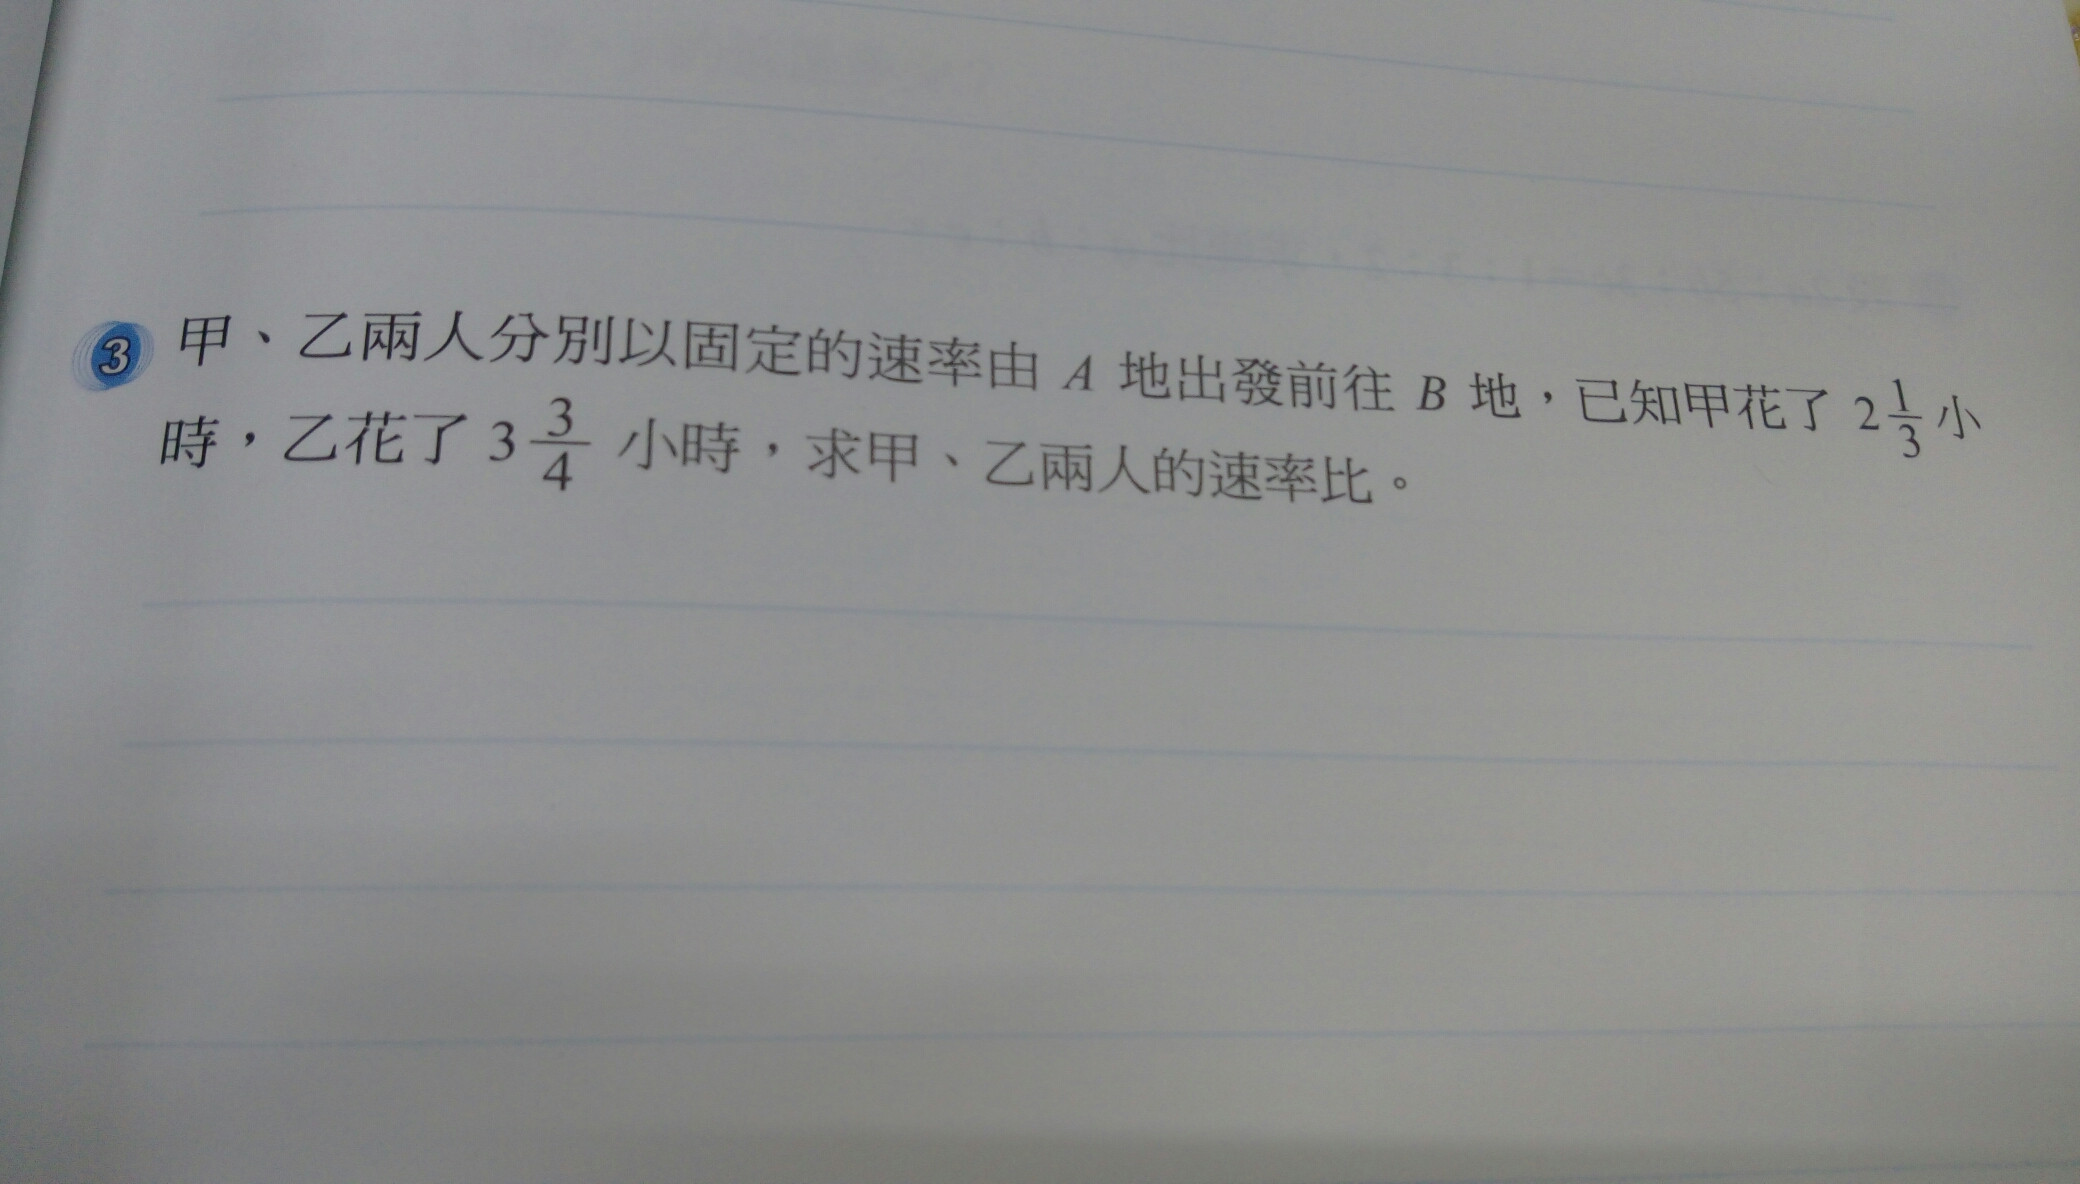 3 甲、乙兩人分別以固定的速率由 A 地出發前往 B 地，已知甲花了 2 1/3 小
時，乙花了 3 3/4 小時，求甲、乙兩人的速率比。